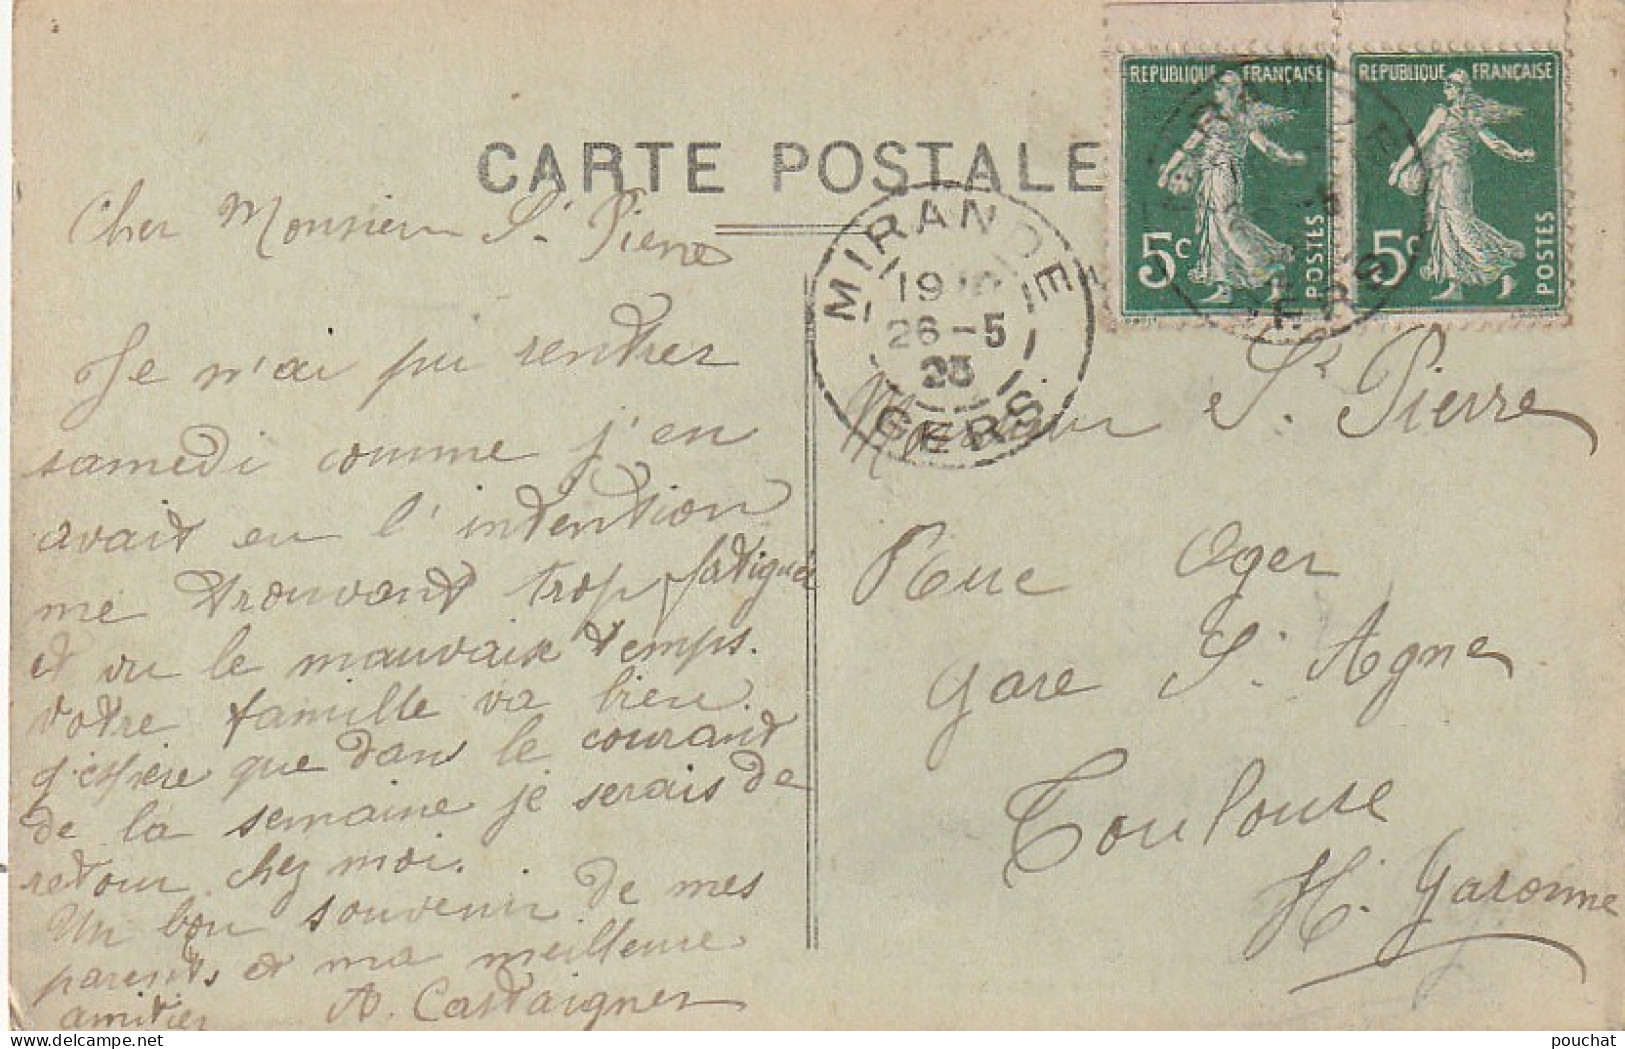 CARTE POSTALE
REPUBLIQUE FRANÇAISE
5c POSTES
REPUBLIQUE FRANÇAISE
5c POSTES
MIRANDE
26-5
23
GERS
MIRANDE
GERS
Cher Monsieur St Pierre
Je n'ai pu rentrer
samedi comme j'en
avait eu l'intention
me trouvant trop fatigué
et vu le mauvaix temps.
votre famille va bien.
J'espère que dans le courant
de la semaine je serais de
retour chez moi.
Un bon souvenir de mes
parents et ma meilleure
amitier A. Castaigner
Monsieur St Pierre
Rue Oger
Gare St Agne
Toulouse
Hte Garonne
© pouchat
delcampe.net